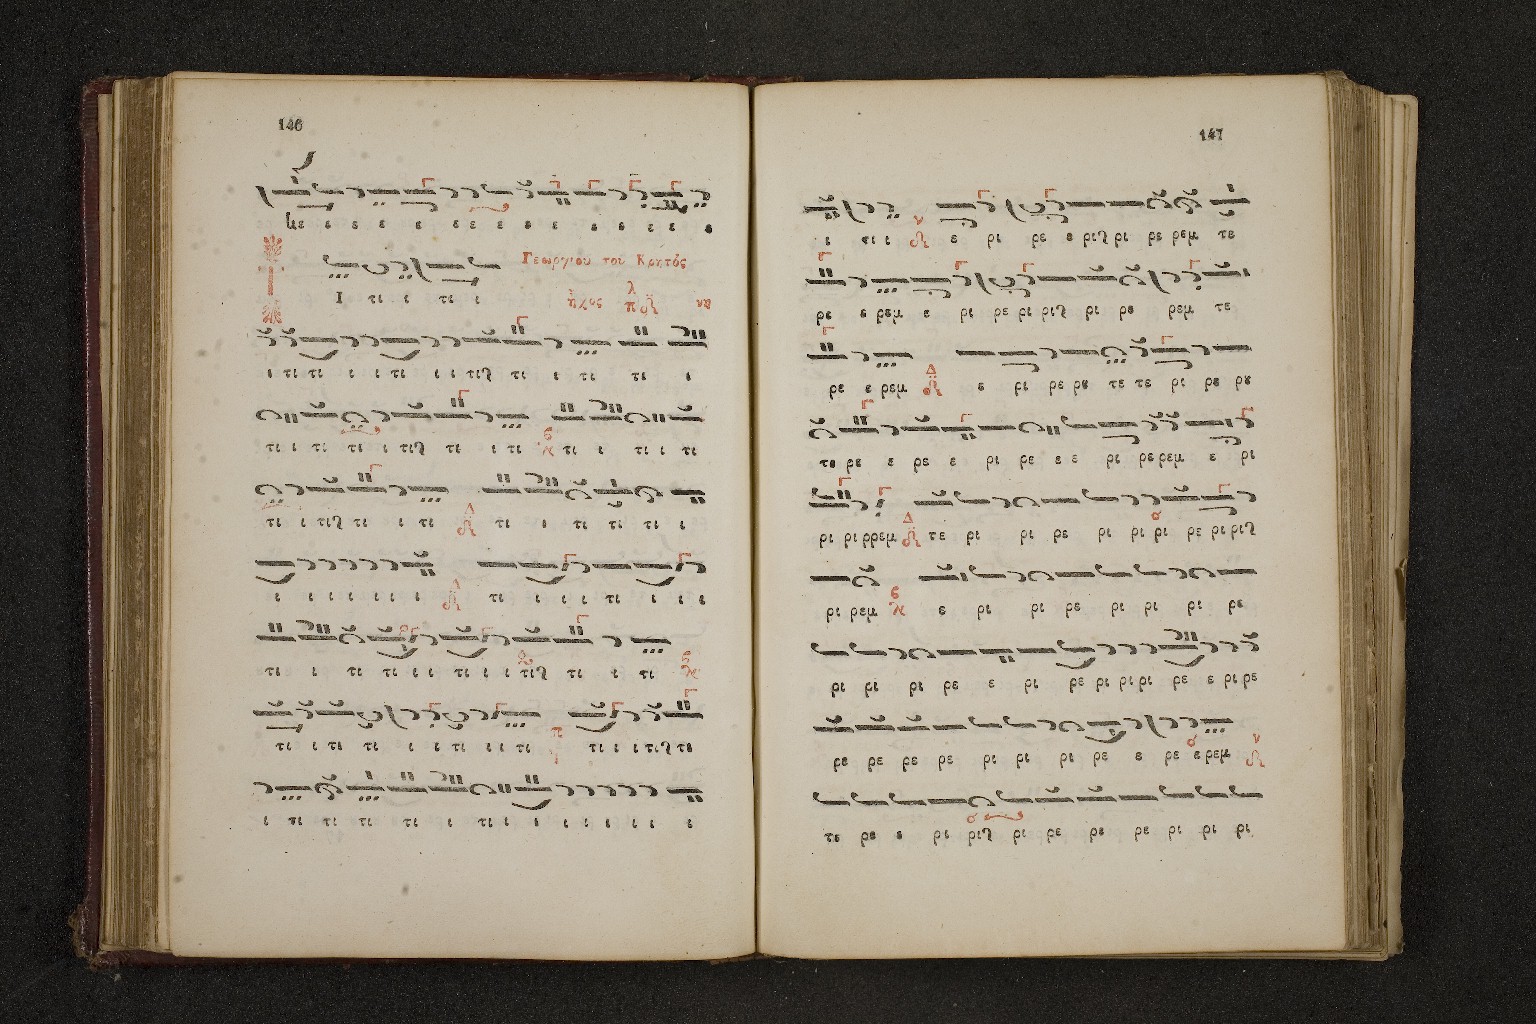 146
με ε ε ε ε ε ε ε ε ε ε ε ε ε ε
Γεωργίου του Κρητός
Ι τι ι τι ι ἦχος λ π δ̈ νη
ι τι τι ι ι τι ι ι τις τι ι τι τι ι
τι ι τι τι ι τις τι ι τι ϛ τι ι τι ι τι
τι ι τις τι ι τι Δ τι ι τι τι τι ι
ι ι ι ι ι ι ι Δ τι ι ι ι τι ι ι ι
τι ι τι τι ι ι τι ι ι τις τι ι τι ϛ
τι ι τι τι ι ι τι ι ι τι π τι ι ι τις τι
ι τι τι τι τι ι τι ι ι ι ι ι ι ι ι
147
ι τι ι ν ε ρι ρε ε ρις ρι ρε ρεμ τε
ρε ε ρεμ ε ρι ρε ρι ρις ρι ρε ρεμ τε
ρε ε ρεμ Δ ε ρι ρε ρε τε τε ρι ρε ρε
τε ρε ε ρε ε ρι ρε ε ε ρι ρε ρεμ ε ρι
ρι ρι ρρεμ Δ τε ρι ρι ρε ρι ρι ρι ρε ρι ρις
ρι ρεμ ϛ ε ρι ρι ρε ρι ρι ρι ρε
ρι ρι ρι ρε ε ρι ρε ρι ρι ρι ρε ε ρι ρε
ρε ρε ρε ρε ρι ρι ρι ρε ε ρε ε ρεμ ν
τε ρε ε ρι ρις ρι ρε ρε ρε ρι ρι ρι